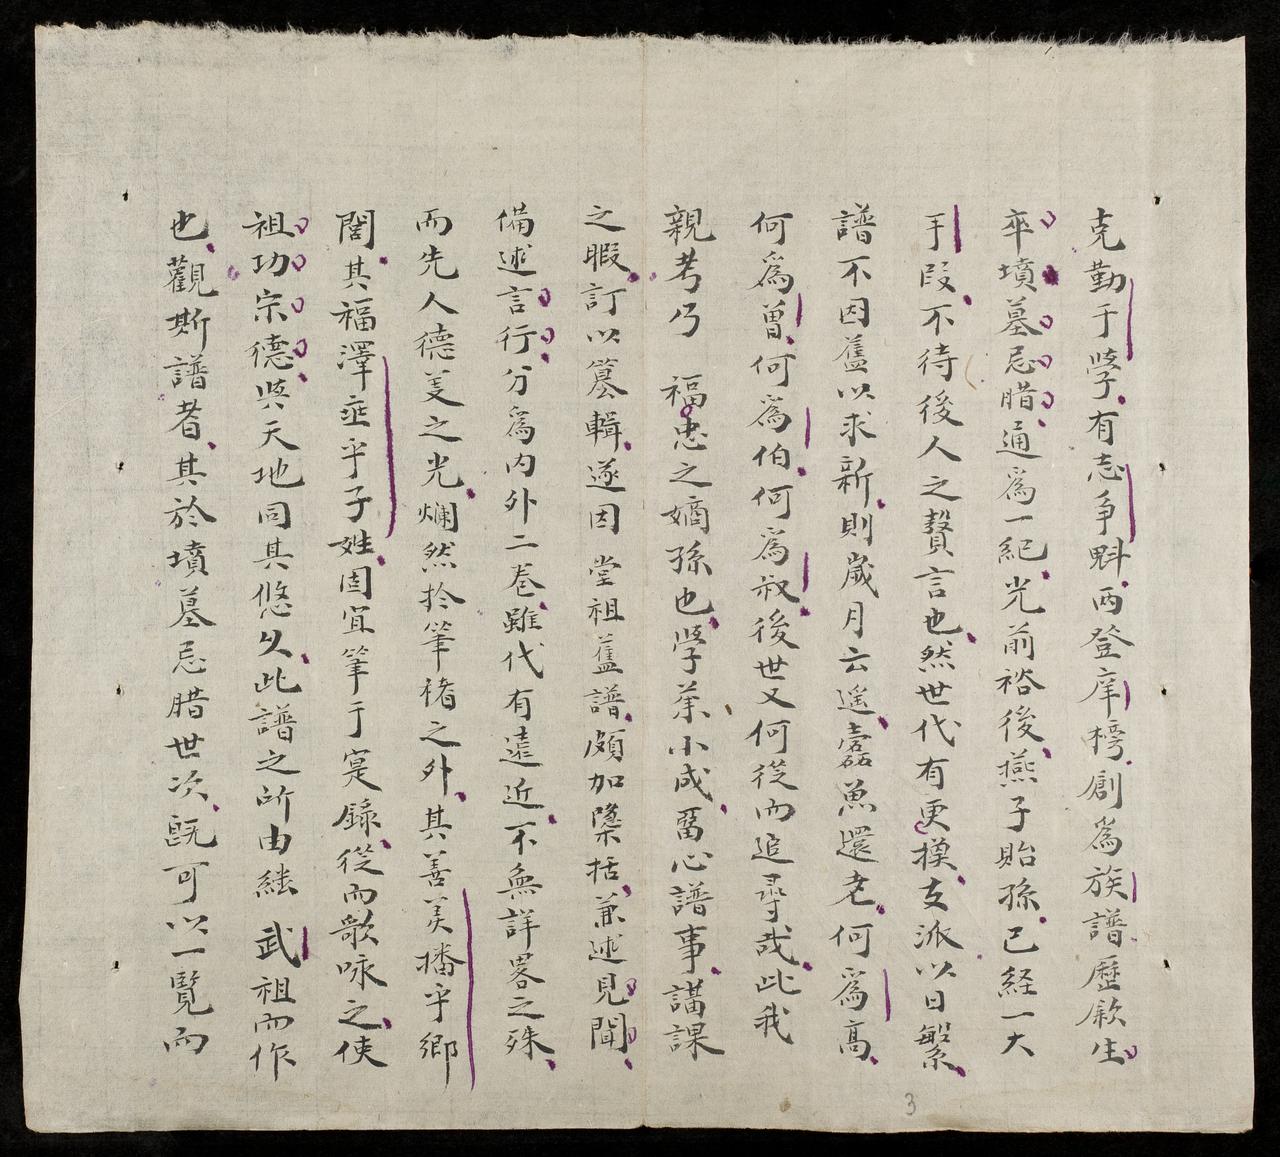 克勤于學有志争魁两登庠榜創爲族譜歷敘生
卒墳墓忌腊通爲一紀光前裕後燕子貽孫已経一大
手叚不待後人之贅言也然世代有更摸支派以日繁
譜不因舊以求新則歲月云遥蠹魚還老何爲高
何爲曽何爲伯何爲叔後世又何從而追尋哉此我
親考乃 福忠之嫡孫也學業小成留心譜事講課
之暇訂以纂輯遂因 堂祖舊譜頗加隱括兼述見聞
備述言行分爲内外二巻雖代有遠近不無詳畧之殊
而先人德美之光爛然於筆楮之外其善美播乎鄉
閭其福澤垂乎子姓固宜筆于寔錄從而歌咏之使
祖功宗德與天地同其悠久此譜之所由繼 武祖而作
也觀斯譜者其於墳墓忌腊世次既可以一覽而
3